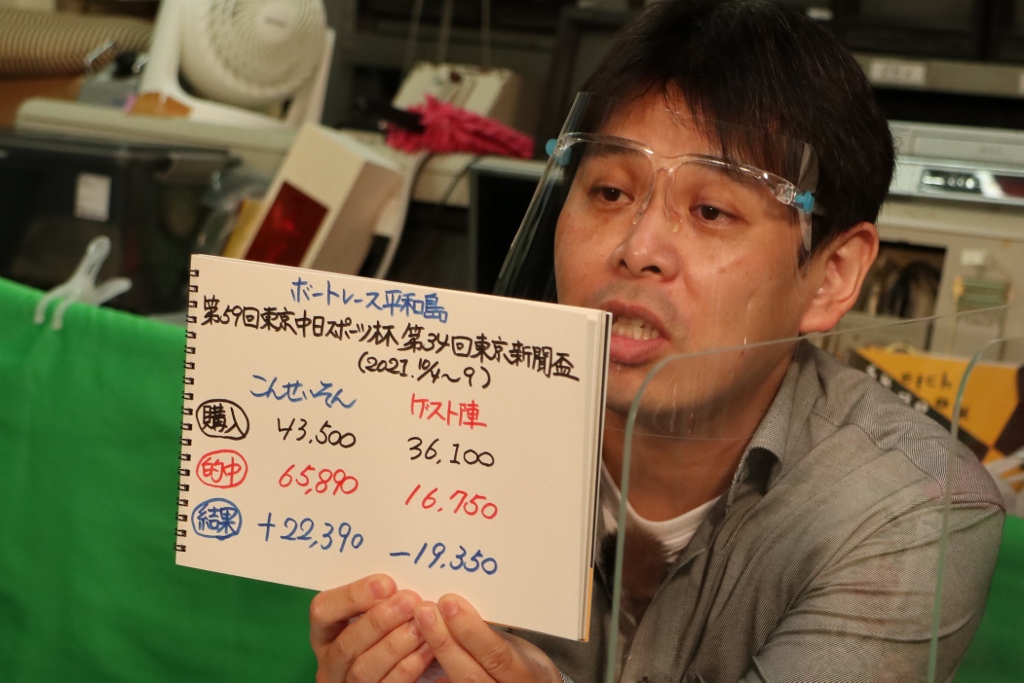 ボートレース平和島
第59回東京中日スポーツ杯 第34回東京新聞盃
(2021.10/4~9)
こんせいそん ゲスト陣
購入 43,500 36,100
的中 65,890 16,750
結果 +22,390 -19,350